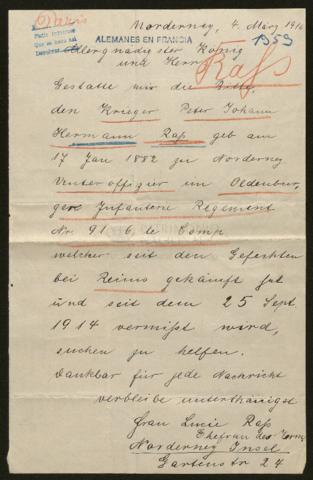 Paris
Norderney, 4. März 1916
ALEMANES EN FRANCIA
1959
Allergnädigster König
und Herr
Raß
Gestatte mir die Bitte,
den Krieger Peter Johann
Hermann Raß geb am
17 Jan 1882 zu Norderney
Unteroffizier im Oldenbur,
ger Infanterie Regiment
Nr. 91 6, te Comp
welcher seit den Gefechten
bei Reims gekämpft hat
und seit dem 25 Sept
1914 vermißt wird,
suchen zu helfen.
Dankbar für jede Nachricht
verbleibe unterthänigst
Frau Lucie Raß
Ehefrau des
Norderney Insel
Gartenstr 24